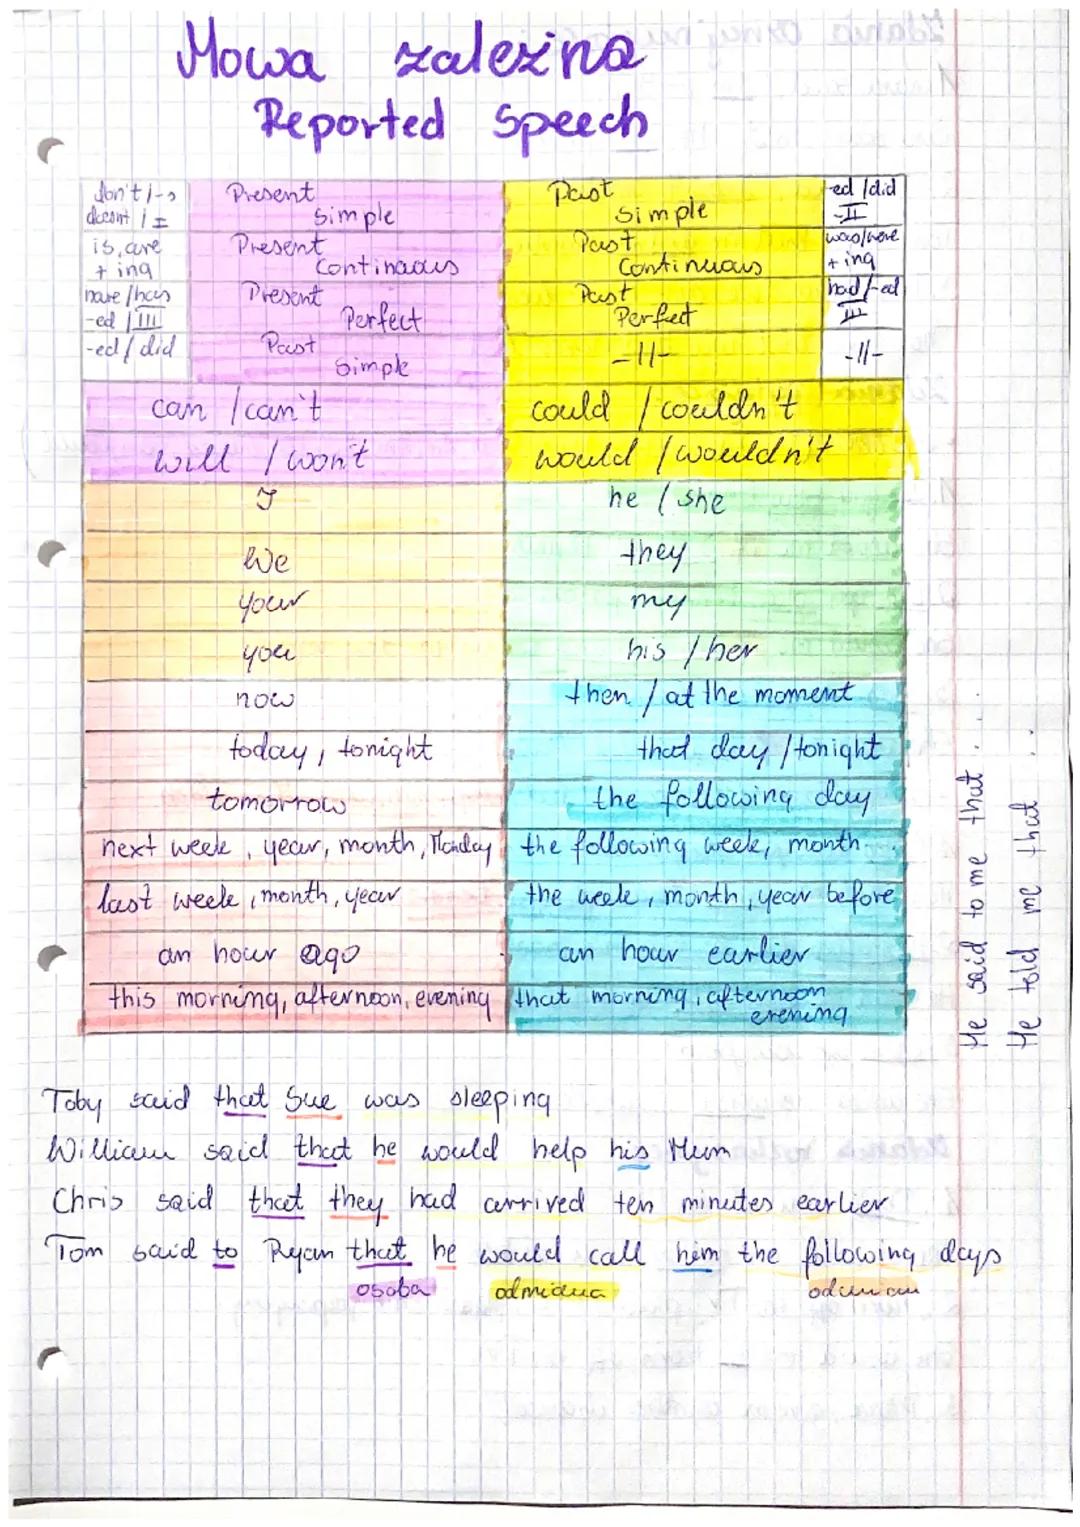 Mowa zależna
Reported Speech
don't / -s Present Past -ed / did
doesnt / I Simple Simple -II
is, are Present Past was/were
+ ing Continuous Continuous + ing
have / has Present Past had / -ed
-ed / III Perfect Perfect III
-ed / did Past Simple -II- -II-
can / can't could / couldn't
will / won't would / wouldn't
I he / she
We they
your my
you his / her
now then / at the moment
today, tonight that day / tonight
tomorrow the following day
next week, year, month, Monday the following week, month...
last week, month, year the week, month, year before
an hour ago an hour earlier
this morning, afternoon, evening that morning, afternoon
evening
He said to me that ...
He told me that ...
Toby said that Sue was sleeping
William said that he would help his Mum
Chris said that they had arrived ten minutes earlier
Tom said to Ryan that he would call him the following days
osoba odmiana